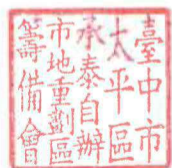 臺中市
太平區
承泰自辦
市地重劃區
籌備會